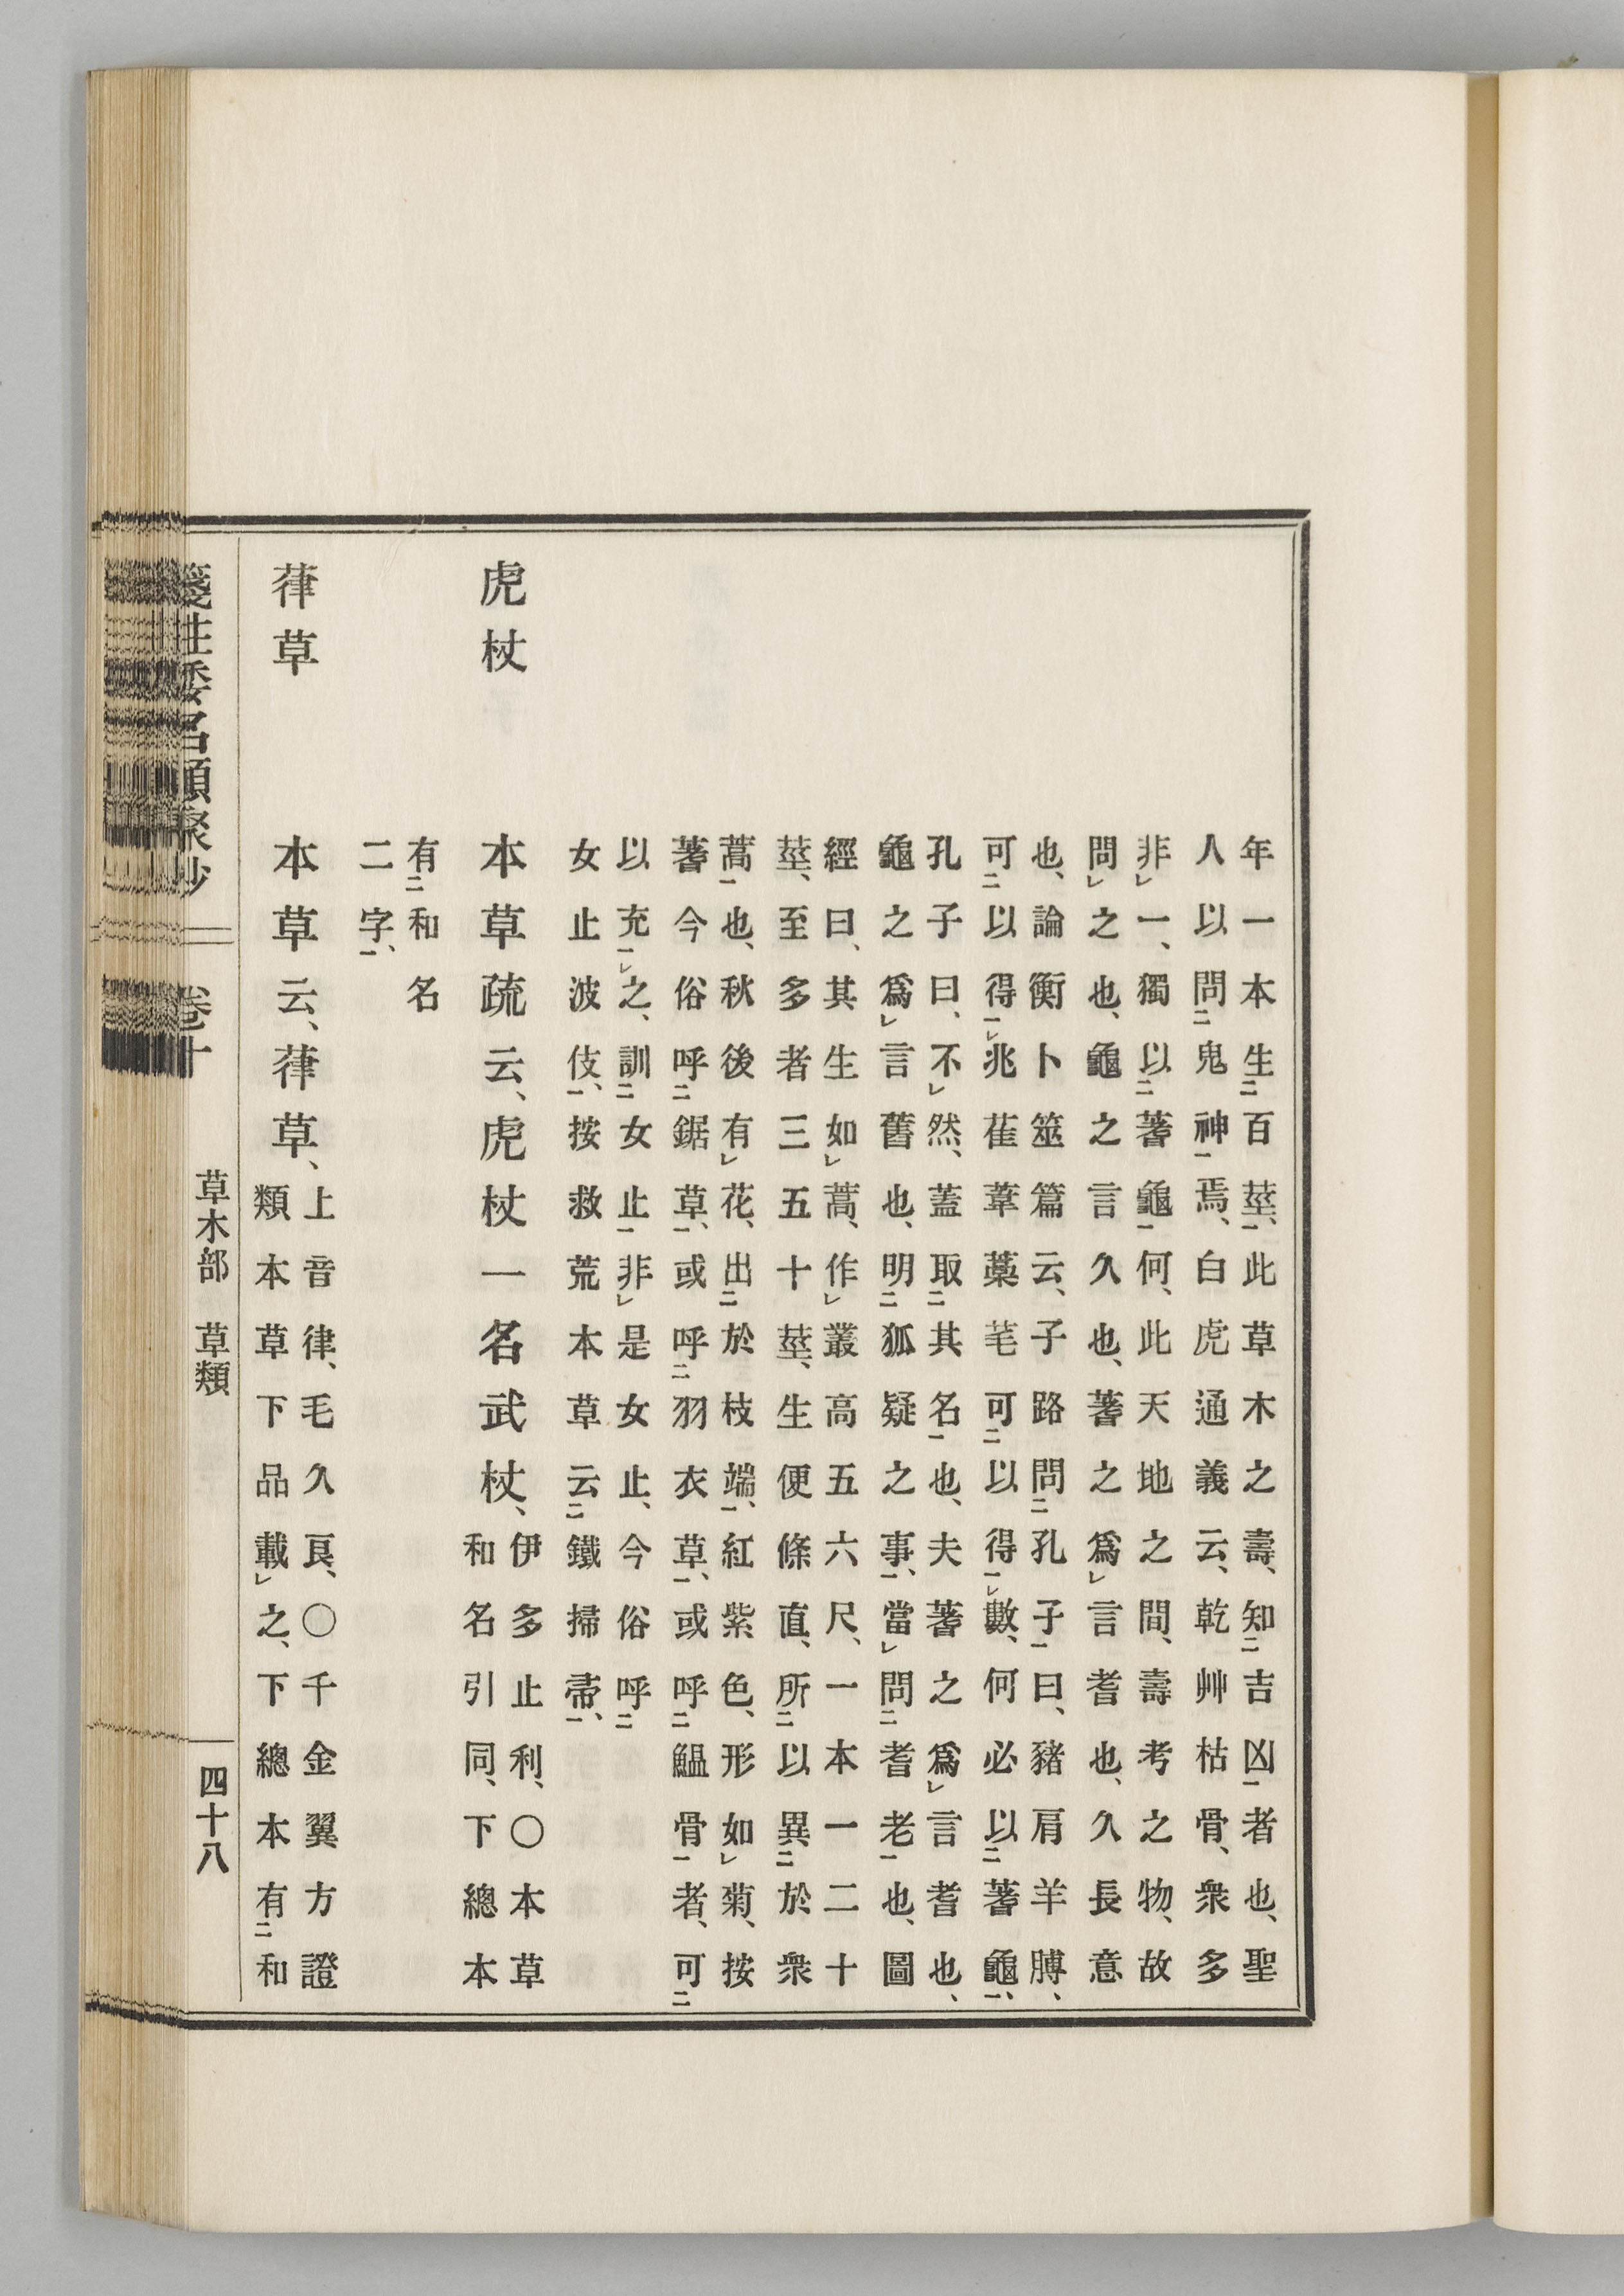 年一本生百莖、此草木之壽、知吉凶者也、聖
人以問鬼神焉、白虎通義云、乾艸枯骨、衆多
非一、獨以蓍龜何、此天地之間、壽考之物、故
問之也、龜之言久也、蓍之爲言耆也、久長意
也、論衡卜筮篇云、子路問孔子曰、豬肩羊膊、
可以得兆、萑葦藁芼可以得數、何必以蓍龜、
孔子曰、不然、蓋取其名也、夫蓍之爲言耆也、
龜之爲言舊也、明狐疑之事、當問耆老也、圖
經曰、其生如蒿、作叢高五六尺、一本一二十
莖、至多者三五十莖、生便條直、所以異於衆
蒿也、秋後有花、出於枝端、紅紫色、形如菊、按
蓍今俗呼鋸草、或呼羽衣草、或呼鰮骨者、可
以充之、訓女止非是女止、今俗呼
女止波伎、按救荒本草云鐵掃帚、
虎杖　本草疏云、虎杖一名武杖、
伊多止利、〇本草
和名引同、下總本
有和名
二字、
葎草　本草云、葎草、
上音律、毛久良、〇千金翼方證
類本草下品載之、下總本有和
箋注倭名類聚抄　卷十　草木部　草類　四十八